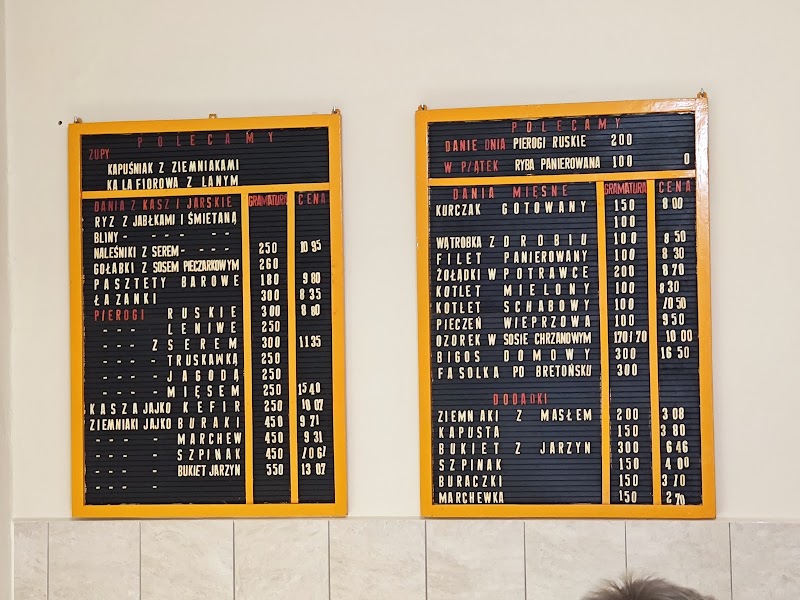 POLECAMY
ZUPY
KAPUŚNIAK Z ZIEMNIAKAMI
KALAFIOROWA Z LANYM
DANIA Z KASZ I JARSKIE GRAMATURA CENA
RYZ Z JABŁKAMI I ŚMIETANĄ
BLINY - - - - - -
NALEŚNIKI Z SEREM - - - 250 10 95
GOŁĄBKI Z SOSEM PIECZARKOWYM 260
PASZTETY BAROWE 180 9 80
ŁAZANKI 300 8 35
PIEROGI RUSKIE 300 8 80
- - - - LENIWE 250
- - - - Z SEREM 300 11 35
- - - - TRUSKAWKĄ 250
- - - - JAGODĄ 250
- - - - MIĘSEM 250 15 40
KASZA JAJKO KEFIR 250 10 07
ZIEMNIAKI JAJKO BURAKI 450 9 71
- - - - MARCHEW 450 9 31
- - - - SZPINAK 450 /0 6/
- - - - BUKIET JARZYN 550 13 07
POLECAMY
DANIE DNIA PIEROGI RUSKIE 200
W P/ĄTEK RYBA PANIEROWANA 100 0
DANIA MIĘSNE GRAMATURA CENA
KURCZAK GOTOWANY 150 8 00
100
WĄTROBKA Z DROBIU 100 8 50
FILET PANIEROWANY 100 8 30
ŻOŁĄDKI W POTRAWCE 200 8 70
KOTLET MIELONY 100 8 30
KOTLET SCHABOWY 100 /0 50
PIECZEŃ WIEPRZOWA 100 9 50
OZOREK W SOSIE CHRZANOWYM 170/70 10 00
BIGOS DOMOWY 300 16 50
FASOLKA PO BRETOŃSKU 300
DODADKI
ZIEMNIAKI Z MASŁEM 200 3 08
KAPUSTA 150 3 80
BUKIET Z JARZYN 300 6 46
SZPINAK 150 4 00
BURACZKI 150 3 70
MARCHEWKA 150 2 70